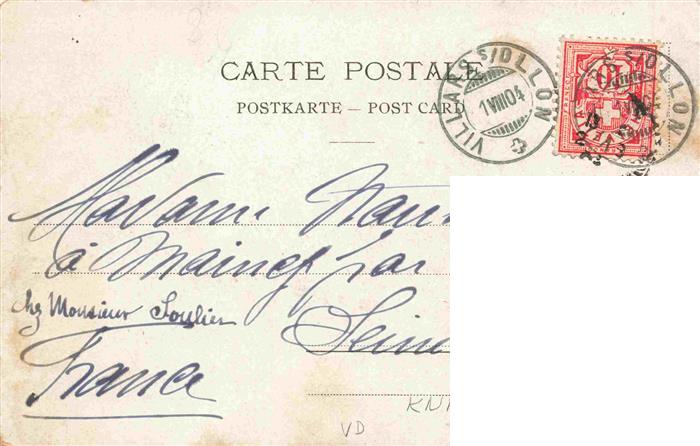 CARTE POSTALE
POSTKARTE — POST CARD
VILLARS S/OLLON
1 VIII 04
10
Madame
à Maincy par
chez Monsieur Soulier
France
VD